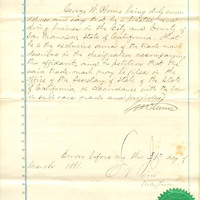 George W. Hume being duly sworn
deposes and says that he is a resident and
doing business in the City and County of
San Francisco, State of California. That
he is the exclusive owner of the Trade-mark
described in the designation accompanying
this affidavit, and he petition that the
said Trade-mark may be placed in the
office of the Secretary of State of the State
of California in accordance with the law
in such case made and provided.
G W Hume
Sworn before me this 21st day of
March 188